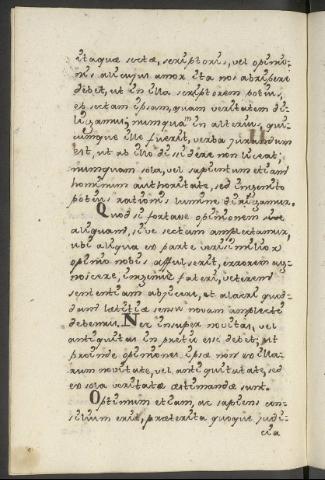 itaque sectæ, scriptoris, vel opinio-
nis alicujus amor ita nos abripere
debet, ut in illa scriptorem potius,
et sectam ipsam, quam veritatem di-
ligamus; numquam in alterius, qui-
cumque ille fuerit, verba jurandum
est, ut ab illo discedere non liceat;
numquam sola, vel sapientum etiam
hominum authoritate, sed ingenito
potius rationis lumine dirigamur.
Quod si fortasse opinionem sive
aliquam, sive sectam amplectamur,
ubi aliqua ex parte verisimilior
opinio nobis affulserit, errorem ag-
noscere, ingenue fateri, veterem
sententiam abjicere, et alacri quo-
dam lætitiæ sensu novam amplecti
debemus. Nec insuper novitas, vel
antiquitas in pretio esse debet; sed
proinde opiniones ipsæ non ex illa-
rum novitate, vel antiquitate, sed
ex sola veritate æstimandæ sunt.
Optimum etiam, ac sapiens con-
silium erit, præterita quoque judi-
cia